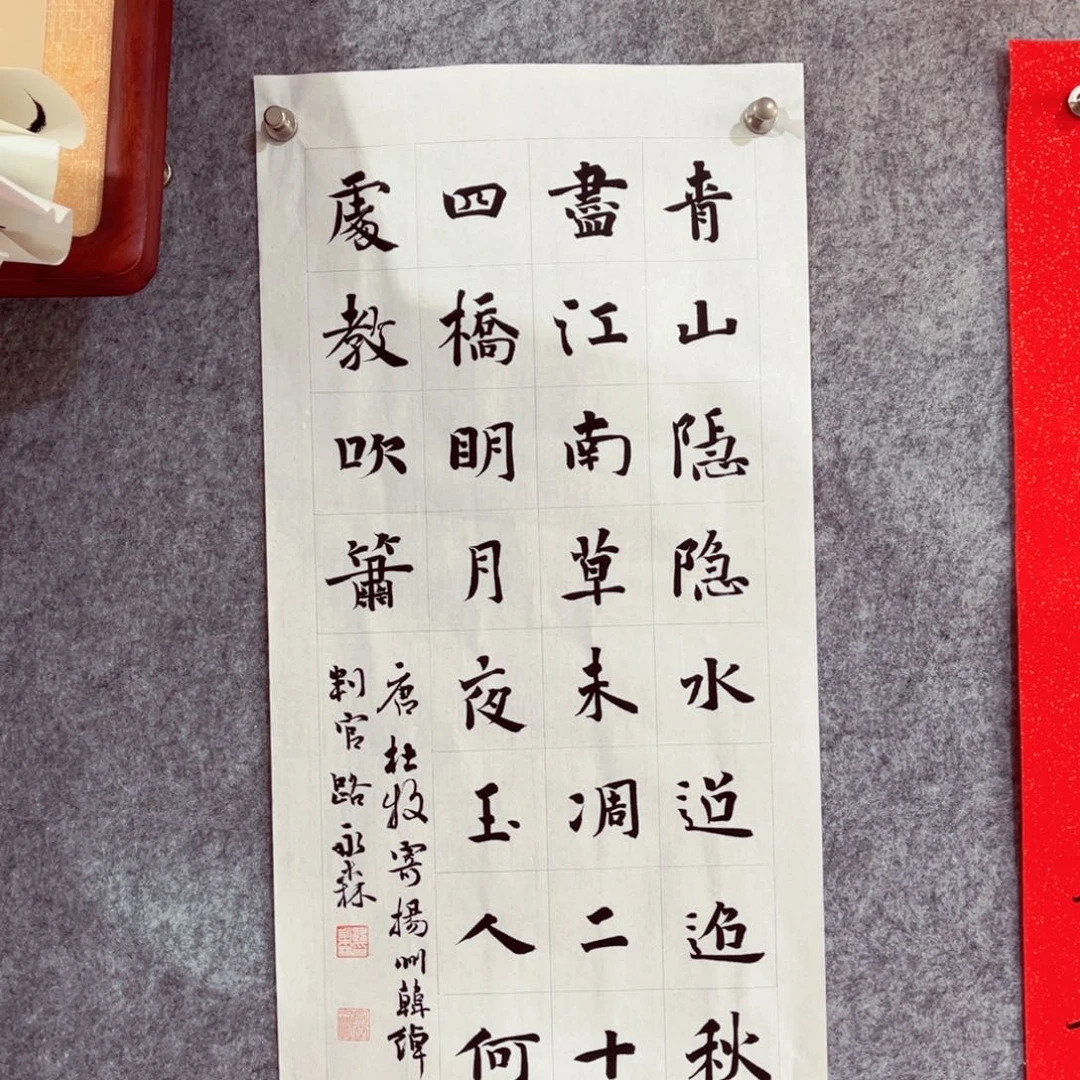 青山隐隐水迢迢秋
盡江南草未凋二十
四橋明月夜玉人何
處教吹簫
唐杜牧寄揚州韓綽
判官路永森